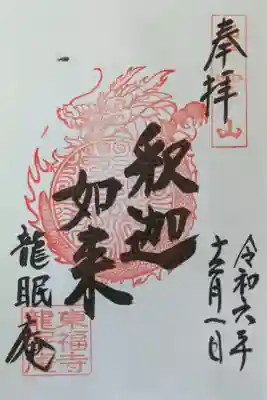 奉拝
山
令和六年
十二月一日
釈迦
如来
龍眠庵
東福寺
龍